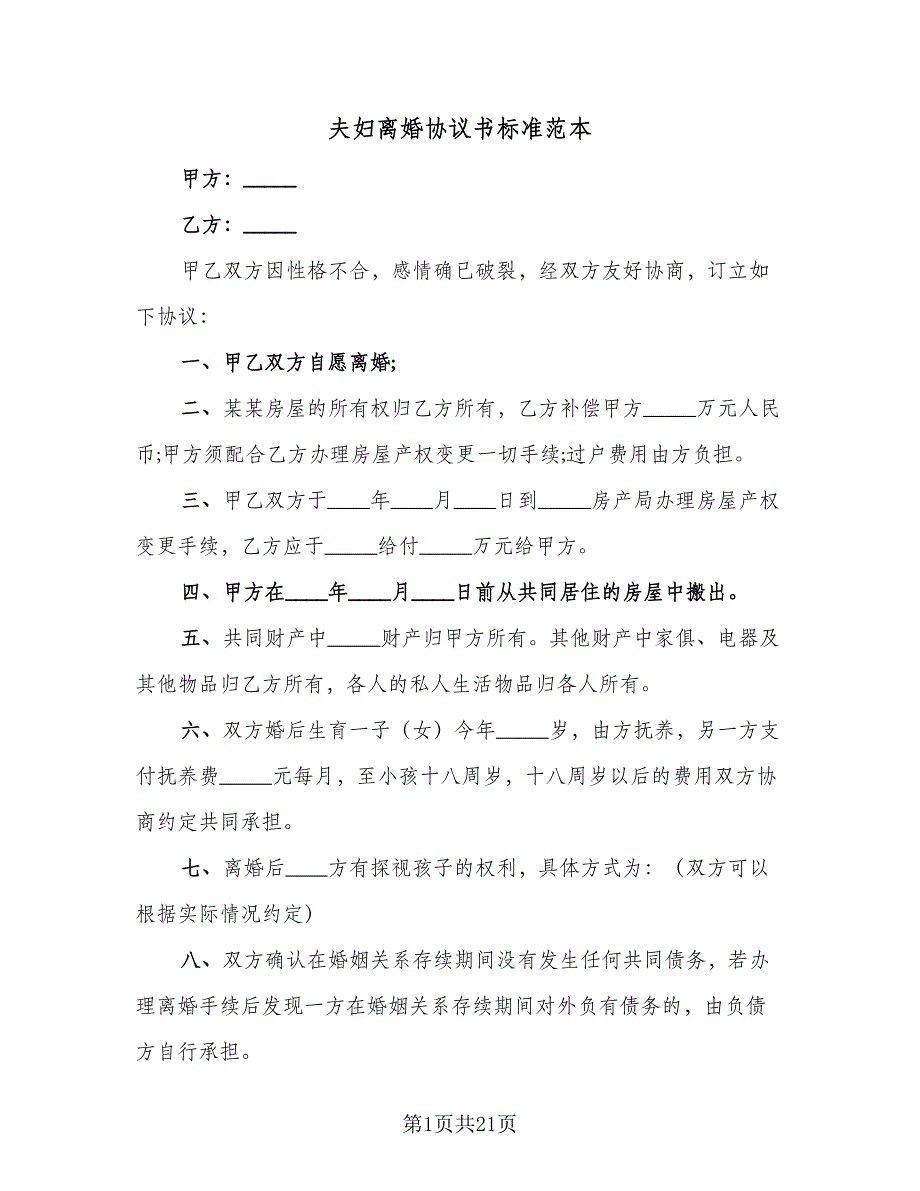 夫妇离婚协议书标准范本
甲方：_____
乙方：_____
甲乙双方因性格不合，感情确已破裂，经双方友好协商，订立如
下协议：
一、甲乙双方自愿离婚;
二、某某房屋的所有权归乙方所有，乙方补偿甲方_____万元人民
币;甲方须配合乙方办理房屋产权变更一切手续;过户费用由方负担。
三、甲乙双方于____年____月____日到_____房产局办理房屋产权
变更手续，乙方应于_____给付_____万元给甲方。
四、甲方在____年____月____日前从共同居住的房屋中搬出。
五、共同财产中_____财产归甲方所有。其他财产中家俱、电器及
其他物品归乙方所有，各人的私人生活物品归各人所有。
六、双方婚后生育一子（女）今年_____岁，由方抚养，另一方支
付抚养费_____元每月，至小孩十八周岁，十八周岁以后的费用双方协
商约定共同承担。
七、离婚后____方有探视孩子的权利，具体方式为：（双方可以
根据实际情况约定）
八、双方确认在婚姻关系存续期间没有发生任何共同债务，若办
理离婚手续后发现一方在婚姻关系存续期间对外负有债务的，由负债
方自行承担。
第1页共21页